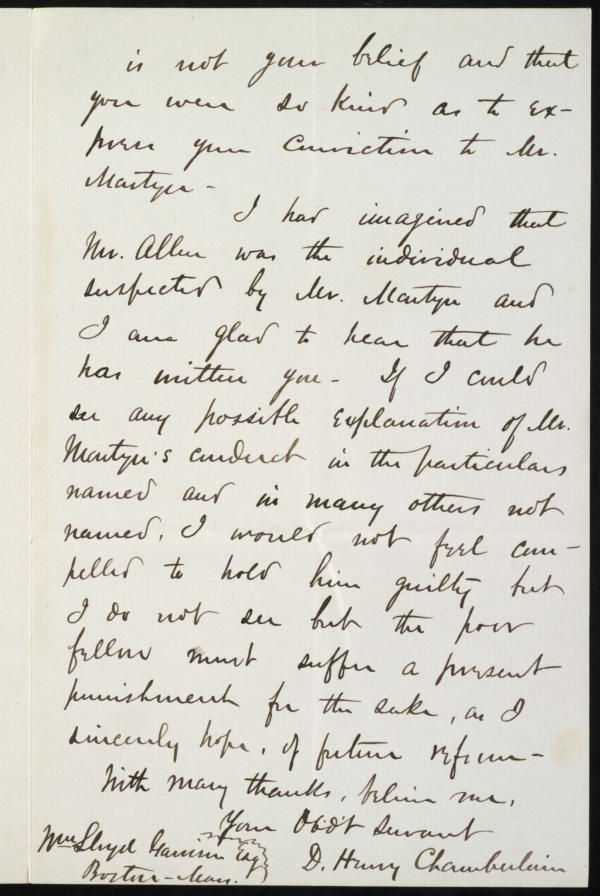 is not your belief and that
you were so kind as to ex-
press your conviction to Mr.
Martyn -
I had imagined that
Mr. Allen was the individual
suspected by Mr. Martyn and
I am glad to hear that he
has written you - If I could
see any possible explanation of Mr.
Martyn's conduct in the particulars
named and in many others not
named, I would not feel com-
pelled to hold him guilty but
I do not see but the poor
fellow must suffer a present
punishment for the sake, as I
sincerely hope, of future reform -
With many thanks, believe me,
Your Obdt servant
Wm Lloyd Garrison Esq
D. Henry Chamberlain
Boston - Mass.